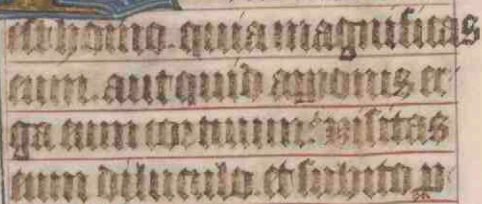 est homo. quia magnificas
eum. aut quid apponis er
ga eum cor tuum? visitas
eum diluculo. et subito p